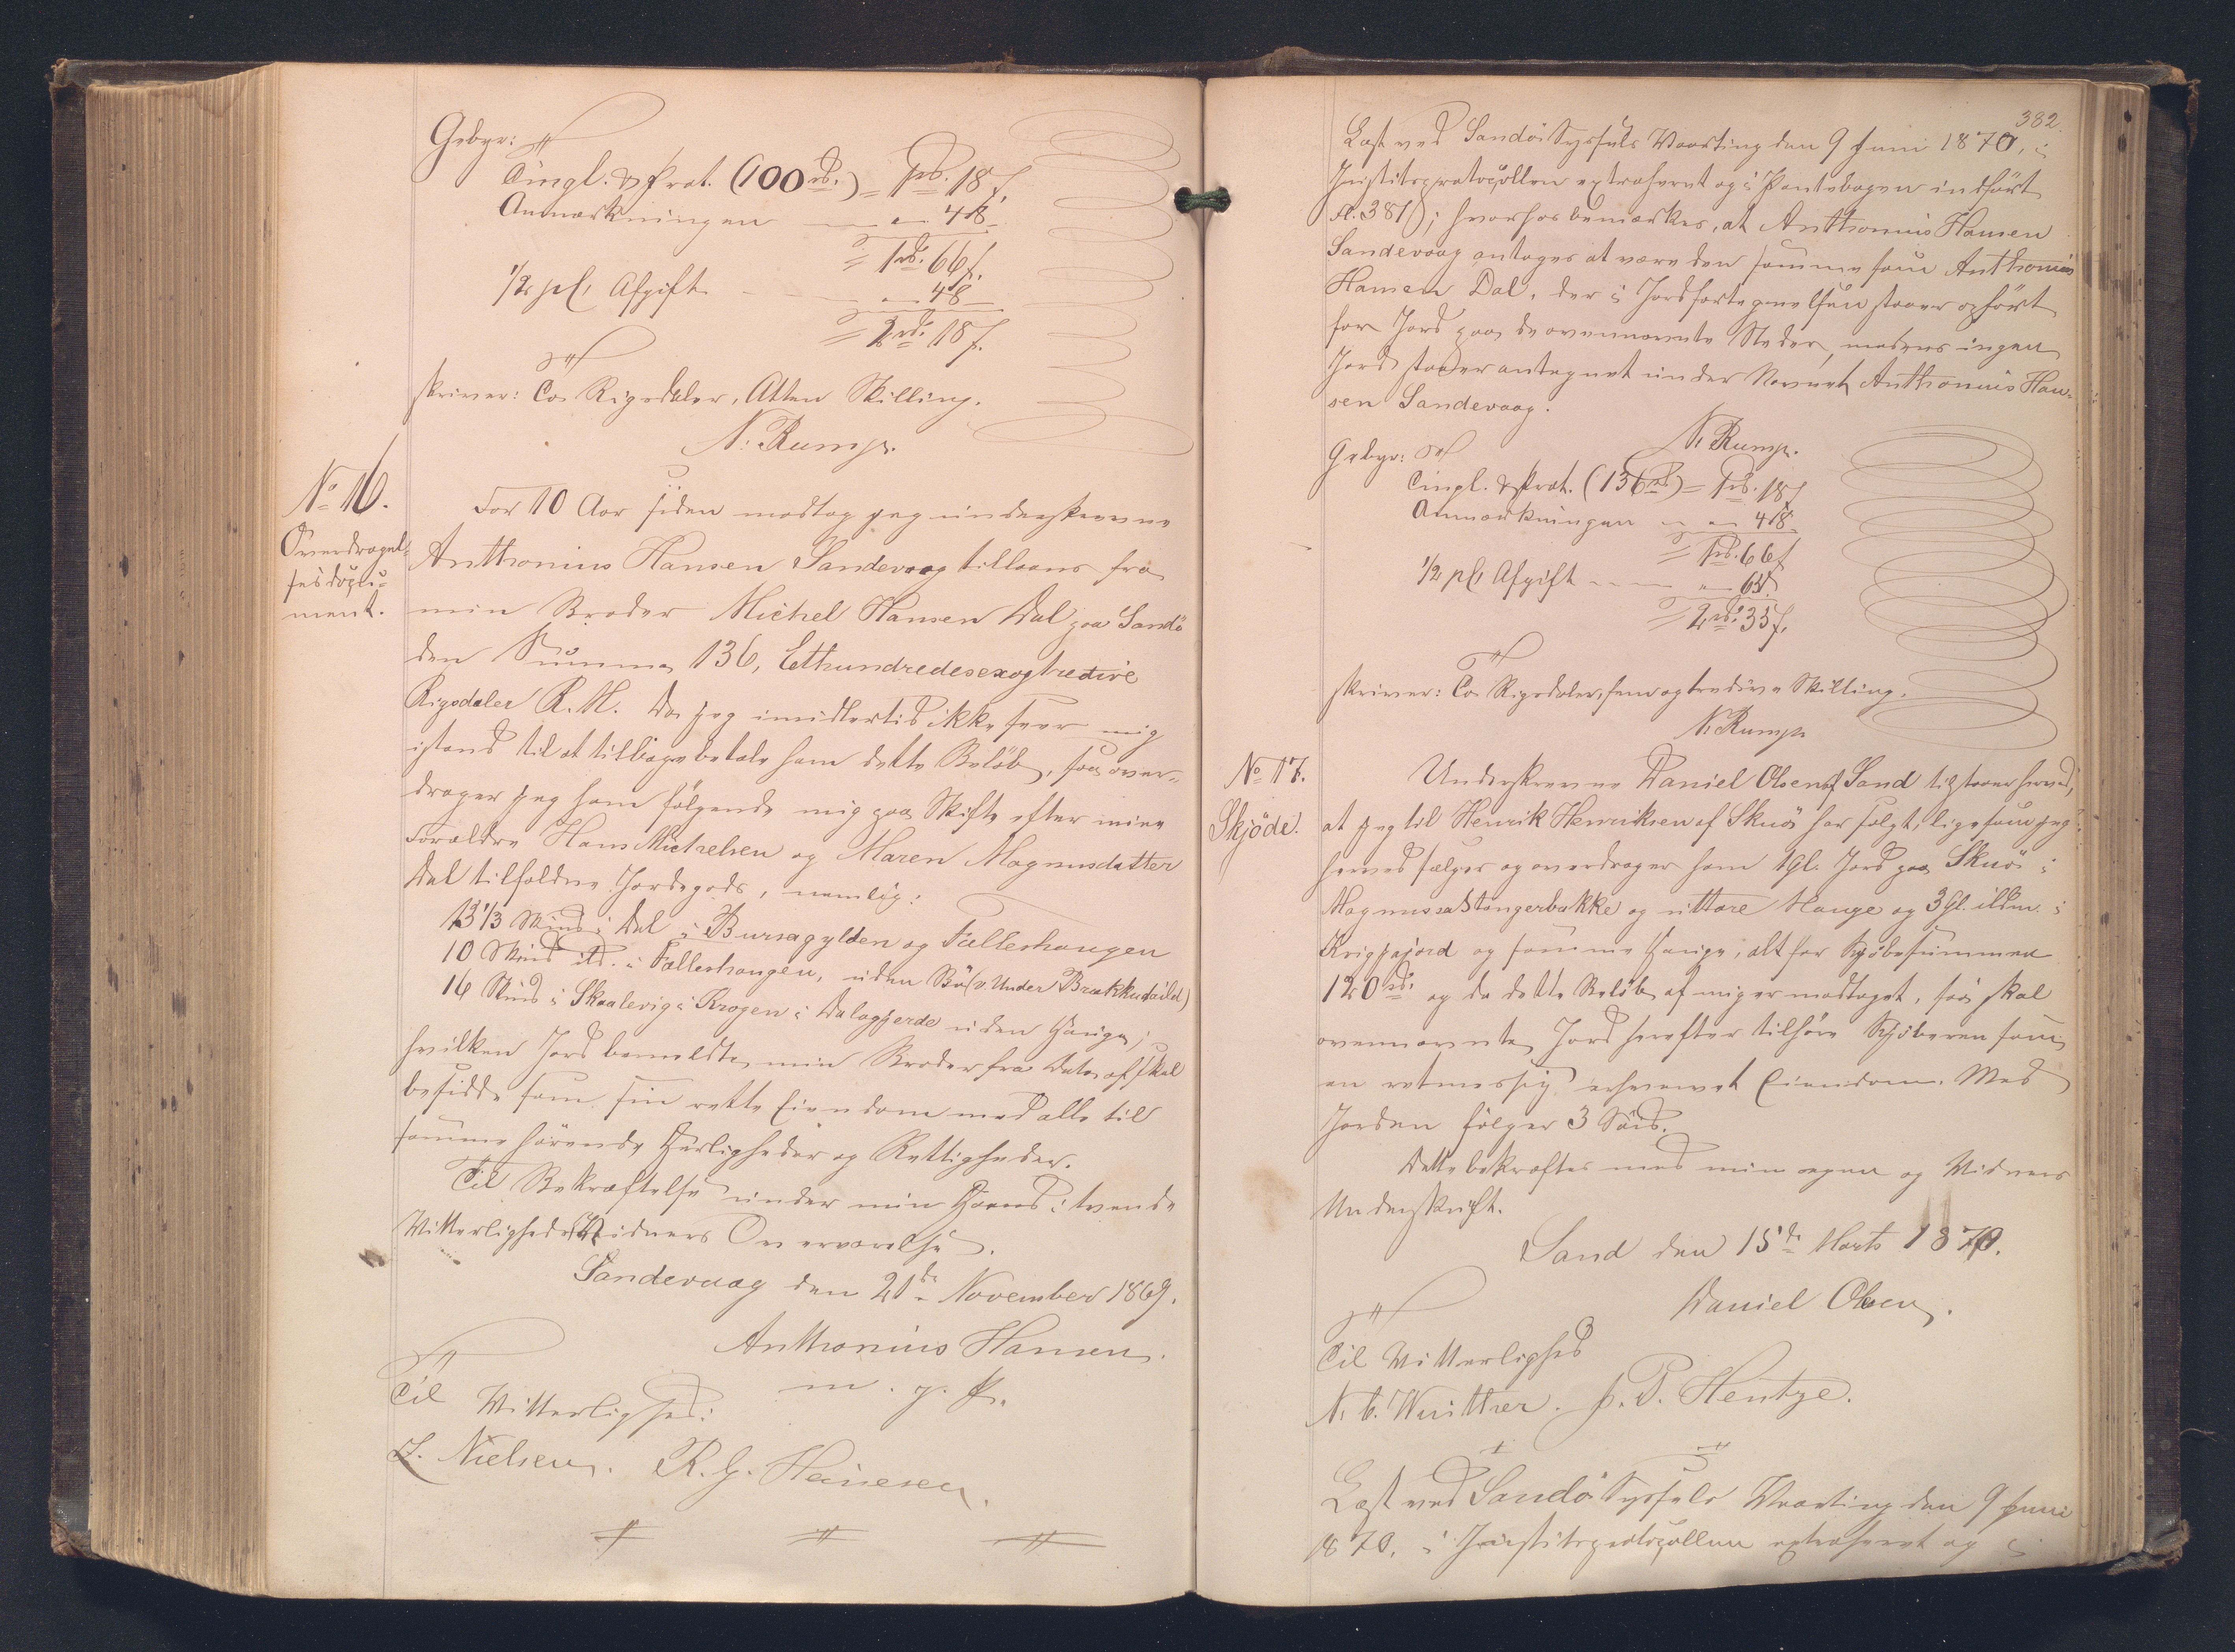 Gebyr:
Tingl. & Prot. (100 rd.) = 1 rd. 18 s.
Anmærkningen — " — 48 -
= 1 rd. 66 s.
1/2 pCt. Afgift — " — 48 -
= 2 rd. 18 s.
skriver: To Rigsdaler, Atten Skilling.
N. Rump.
No 16.
Overdragel-
sesdocu-
ment.
For 10 Aar siden modtog jeg underskrevne
Anthonius Hansen Sandevaag tillaans fra
min Broder Michel Hansen Dal paa Sandö
den Summa 136, Ethundredesexogtredive
Rigsdaler R.M. Da jeg imidlertid ikke seer mig
istand til at tilbagebetale ham dette Beløb, saa over-
drager jeg ham følgende mig paa Skifte efter mine
Forældre Hans Michelsen og Maren Magnusdatter
Dal tilfaldne Jordegods, nemlig:
13 1/3 Skind i Dal i Bursagylden og Fælleshaugen
10 Skind ibd. i Fælleshaugen, uden Bö (v. Under Brækkudaild)
16 Skind i Skaalevig i Krogen i Dalagjerde uden Hauge;
hvilken Jord bemeldte min Broder fra Dato af skal
besidde som sin rette Eiendom med alle til
samme hørende Herligheder og Rettigheder.
Til Bekræftelse under min Haand i tvende
Vitterligheds Vidners Overværelse.
Sandevaag den 21de November 1869.
Anthonius Hansen.
m. p. P.
Til Vitterlighed:
Z. Nielsen. R. G. Heinesen.
382.
Læst ved Sandö Syssels Vaarting den 9 Juni 1870, i
Justitsprotocollen extraheret og i Pantebogen indført
fl. 381; hvorhos bemærkes, at Anthonius Hansen
Sandevaag antages at være den samme som Anthonius
Hansen Dal, der i Jordfortegnelsen staaer opført
for Jord paa de ovennævnte Steder, medens ingen
Jord staaer antegnet under Navnet Anthonius Han-
sen Sandevaag.
N. Rump.
Gebyr:
Tingl. & Prot. (136 rd.) = 1 rd. 18 s.
Anmærkningen — " — 48 -
= 1 rd. 66 s.
1/2 pCt. Afgift — " — 65.
= 2 rd. 35 s.
skriver: To Rigsdaler, fem og tredive Skilling.
N. Rump
No 17.
Skjöde.
Underskrevne Daniel Olsen af Sand tilstaaer herved,
at jeg til Henrik Henriksen af Skuö har solgt, ligesom jeg
herved sælger og overdrager ham 1 Gl. Jord paa Skuö i
Magnussastongerbakke og uttare Hauge og 3 Gl. ibdm. i
Krigpajord og samme Hauge, alt for Kjøbesummen
120 rd. og da dette Beløb af mig er modtaget, saa skal
ovennævnte Jord herefter tilhøre Kjøberen som
en retmessig erhvervet Eiendom. Med
Jorden følger 3 Söid.
Dette bekræftes med min egen og Vidners
Underskrift.
Sand den 15de Marts 1870.
Daniel Olsen.
Til Vitterlighed
N. C. Winther. J. P. Hentze.
Læst ved Sandö Syssels Vaarting den 9 Juni
1870, i Justitsprotocollen extraheret og i